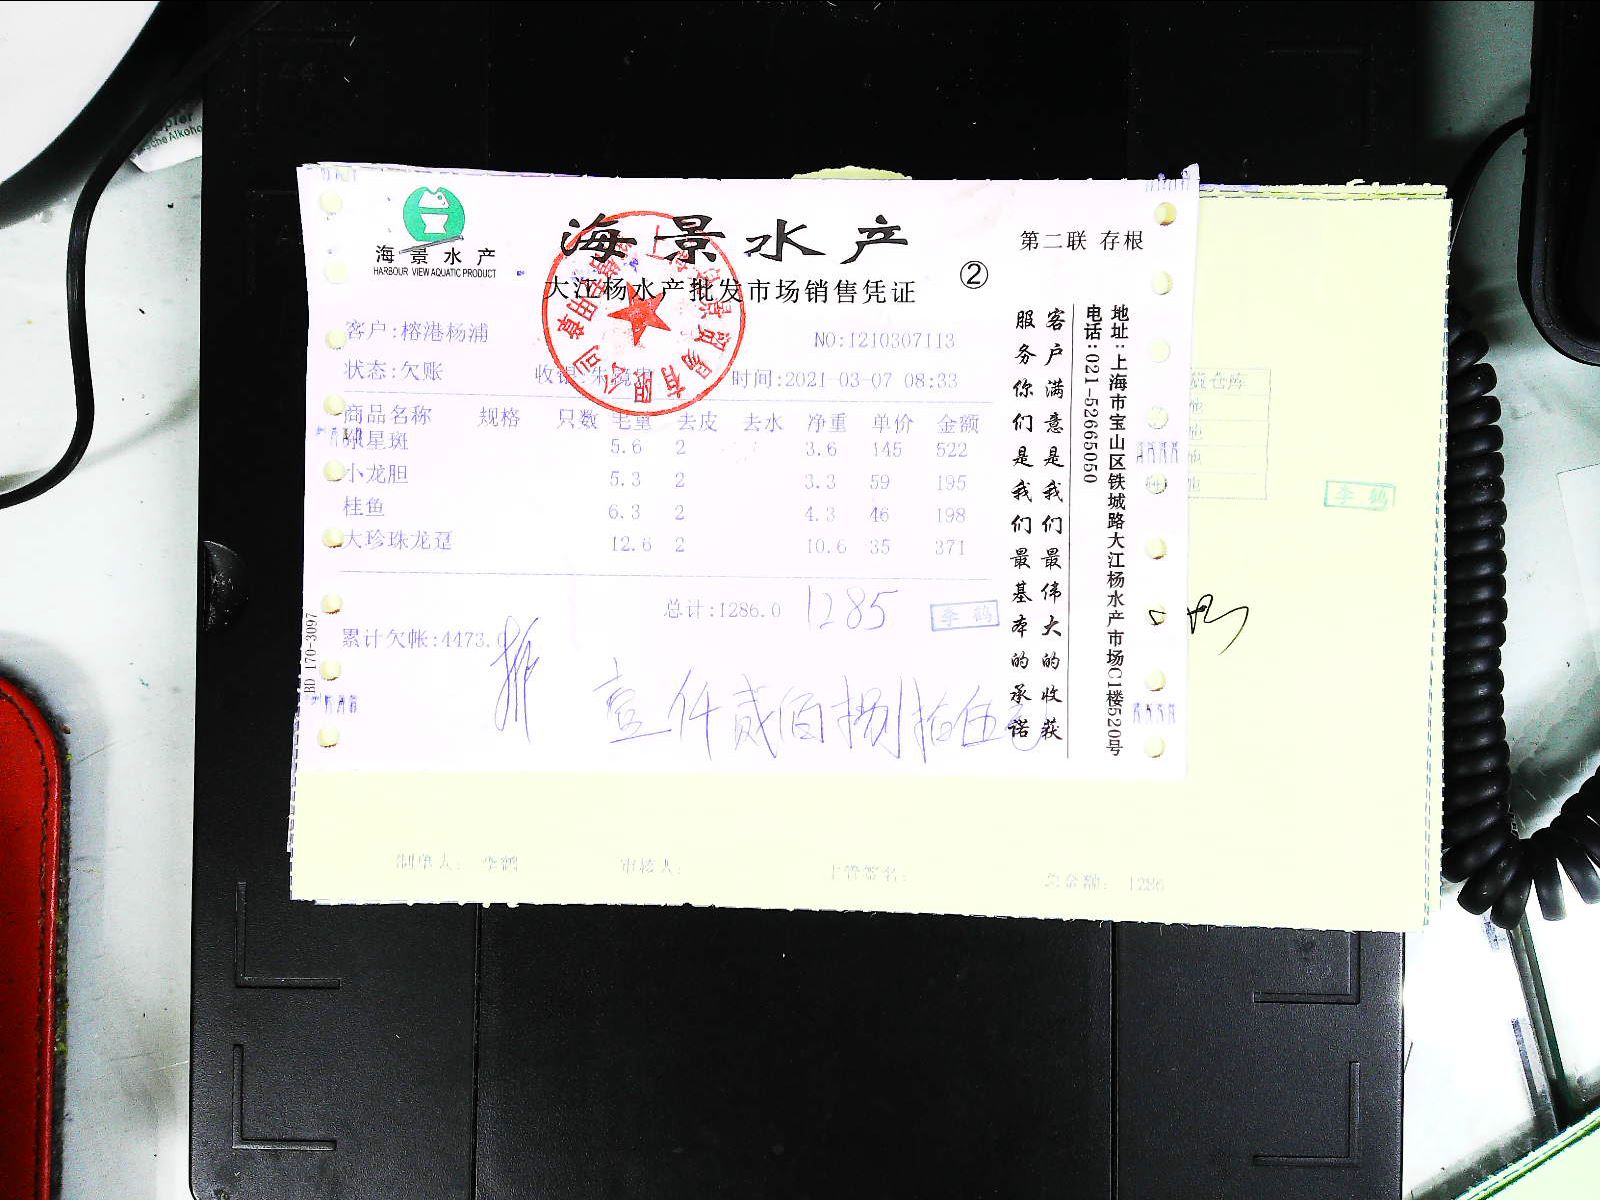 海景水产
HARBOUR VIEW AQUATIC PRODUCT
海景水产
大江杨水产批发市场销售凭证
②
第二联 存根
客户:榕港杨浦
NO:1210307113
状态:欠账
收银:
时间:2021-03-07 08:33
商品名称 规格 只数 毛重 去皮 去水 净重 单价 金额
星斑 5.6 2 3.6 145 522
小龙胆 5.3 2 3.3 59 195
桂鱼 6.3 2 4.3 46 198
大珍珠龙趸 12.6 2 10.6 35 371
总计:1286.0
1285
李鹤
累计欠帐:4473.0
壹仟贰佰捌拾伍元
客户满意是我们最伟大的收获
服务你们是我们最基本的承诺
地址:上海市宝山区铁城路大江杨水产市场C1楼520号
电话:021-52665050
BD 170-3097
李鹤
制单人: 李鹤
审核人:
主管签名:
总金额: 1286